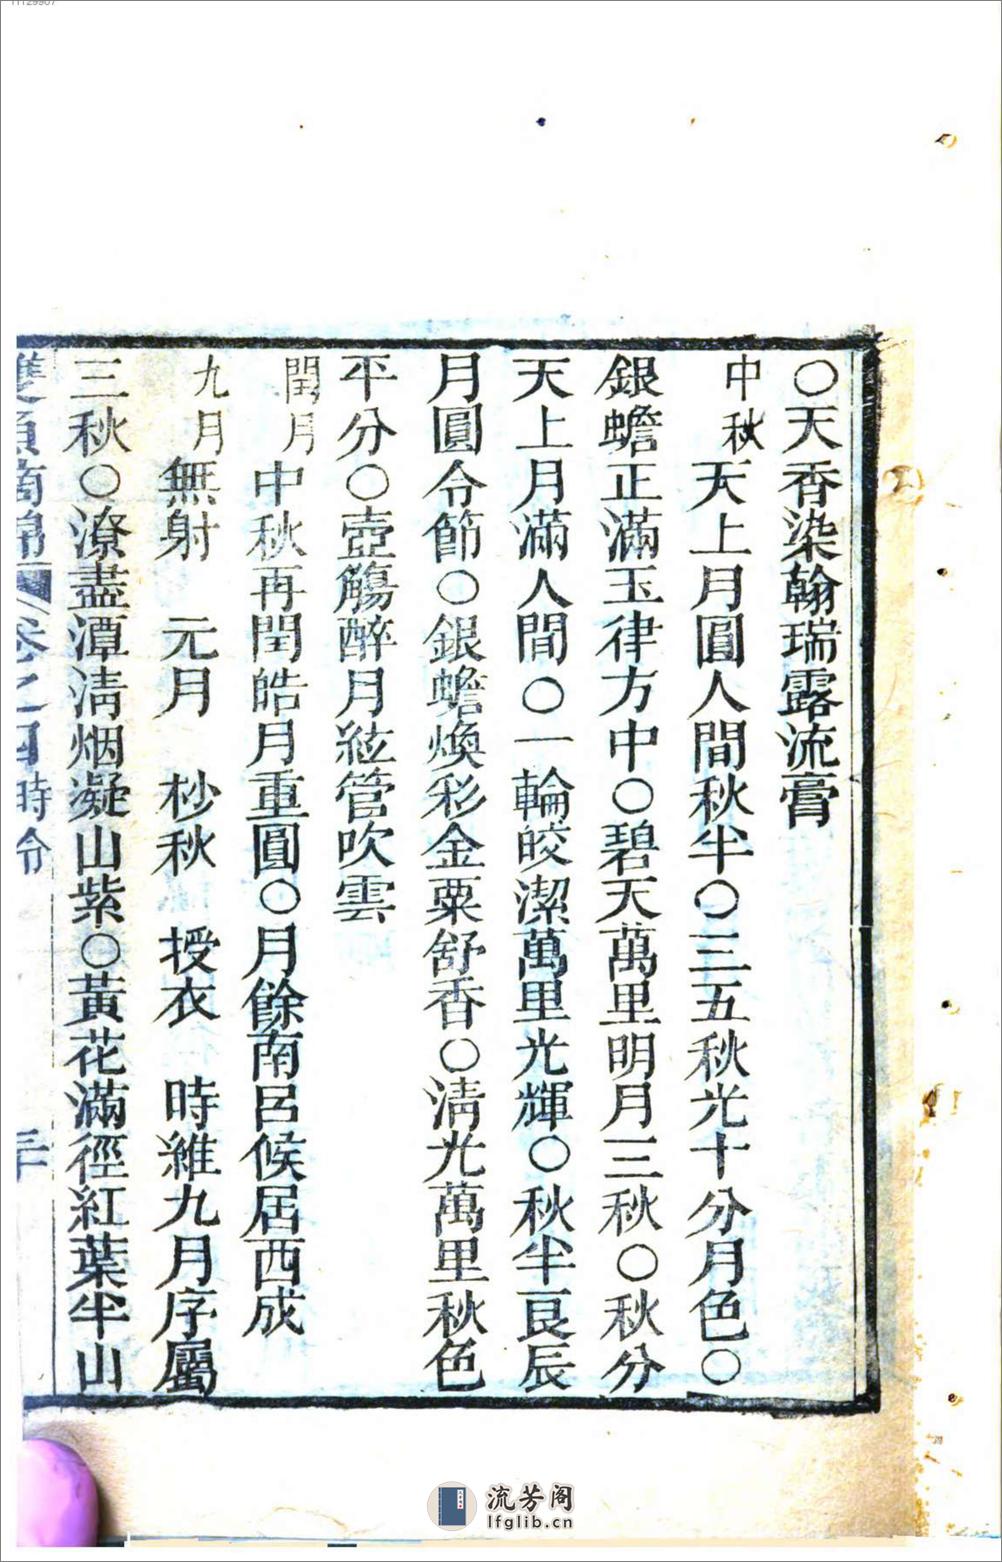 ○天香染翰瑞露流膏
中秋 天上月圓人間秋半○三五秋光十分月色○
銀蟾正滿玉律方中○碧天萬里明月三秋○秋分
天上月滿人間○一輪皎潔萬里光輝○秋半良辰
月圓令節○銀蟾煥彩金粟舒香○淸光萬里秋色
平分○壺觴醉月絃管吹雲
閏月 中秋再閏皓月重圓○月餘南呂候居西成
九月 無射 元月 杪秋 授衣 時維九月序屬
三秋○潦盡潭淸烟凝山紫○黃花滿徑紅葉半山
卷之四時令
流芳阁
lfglib.cn